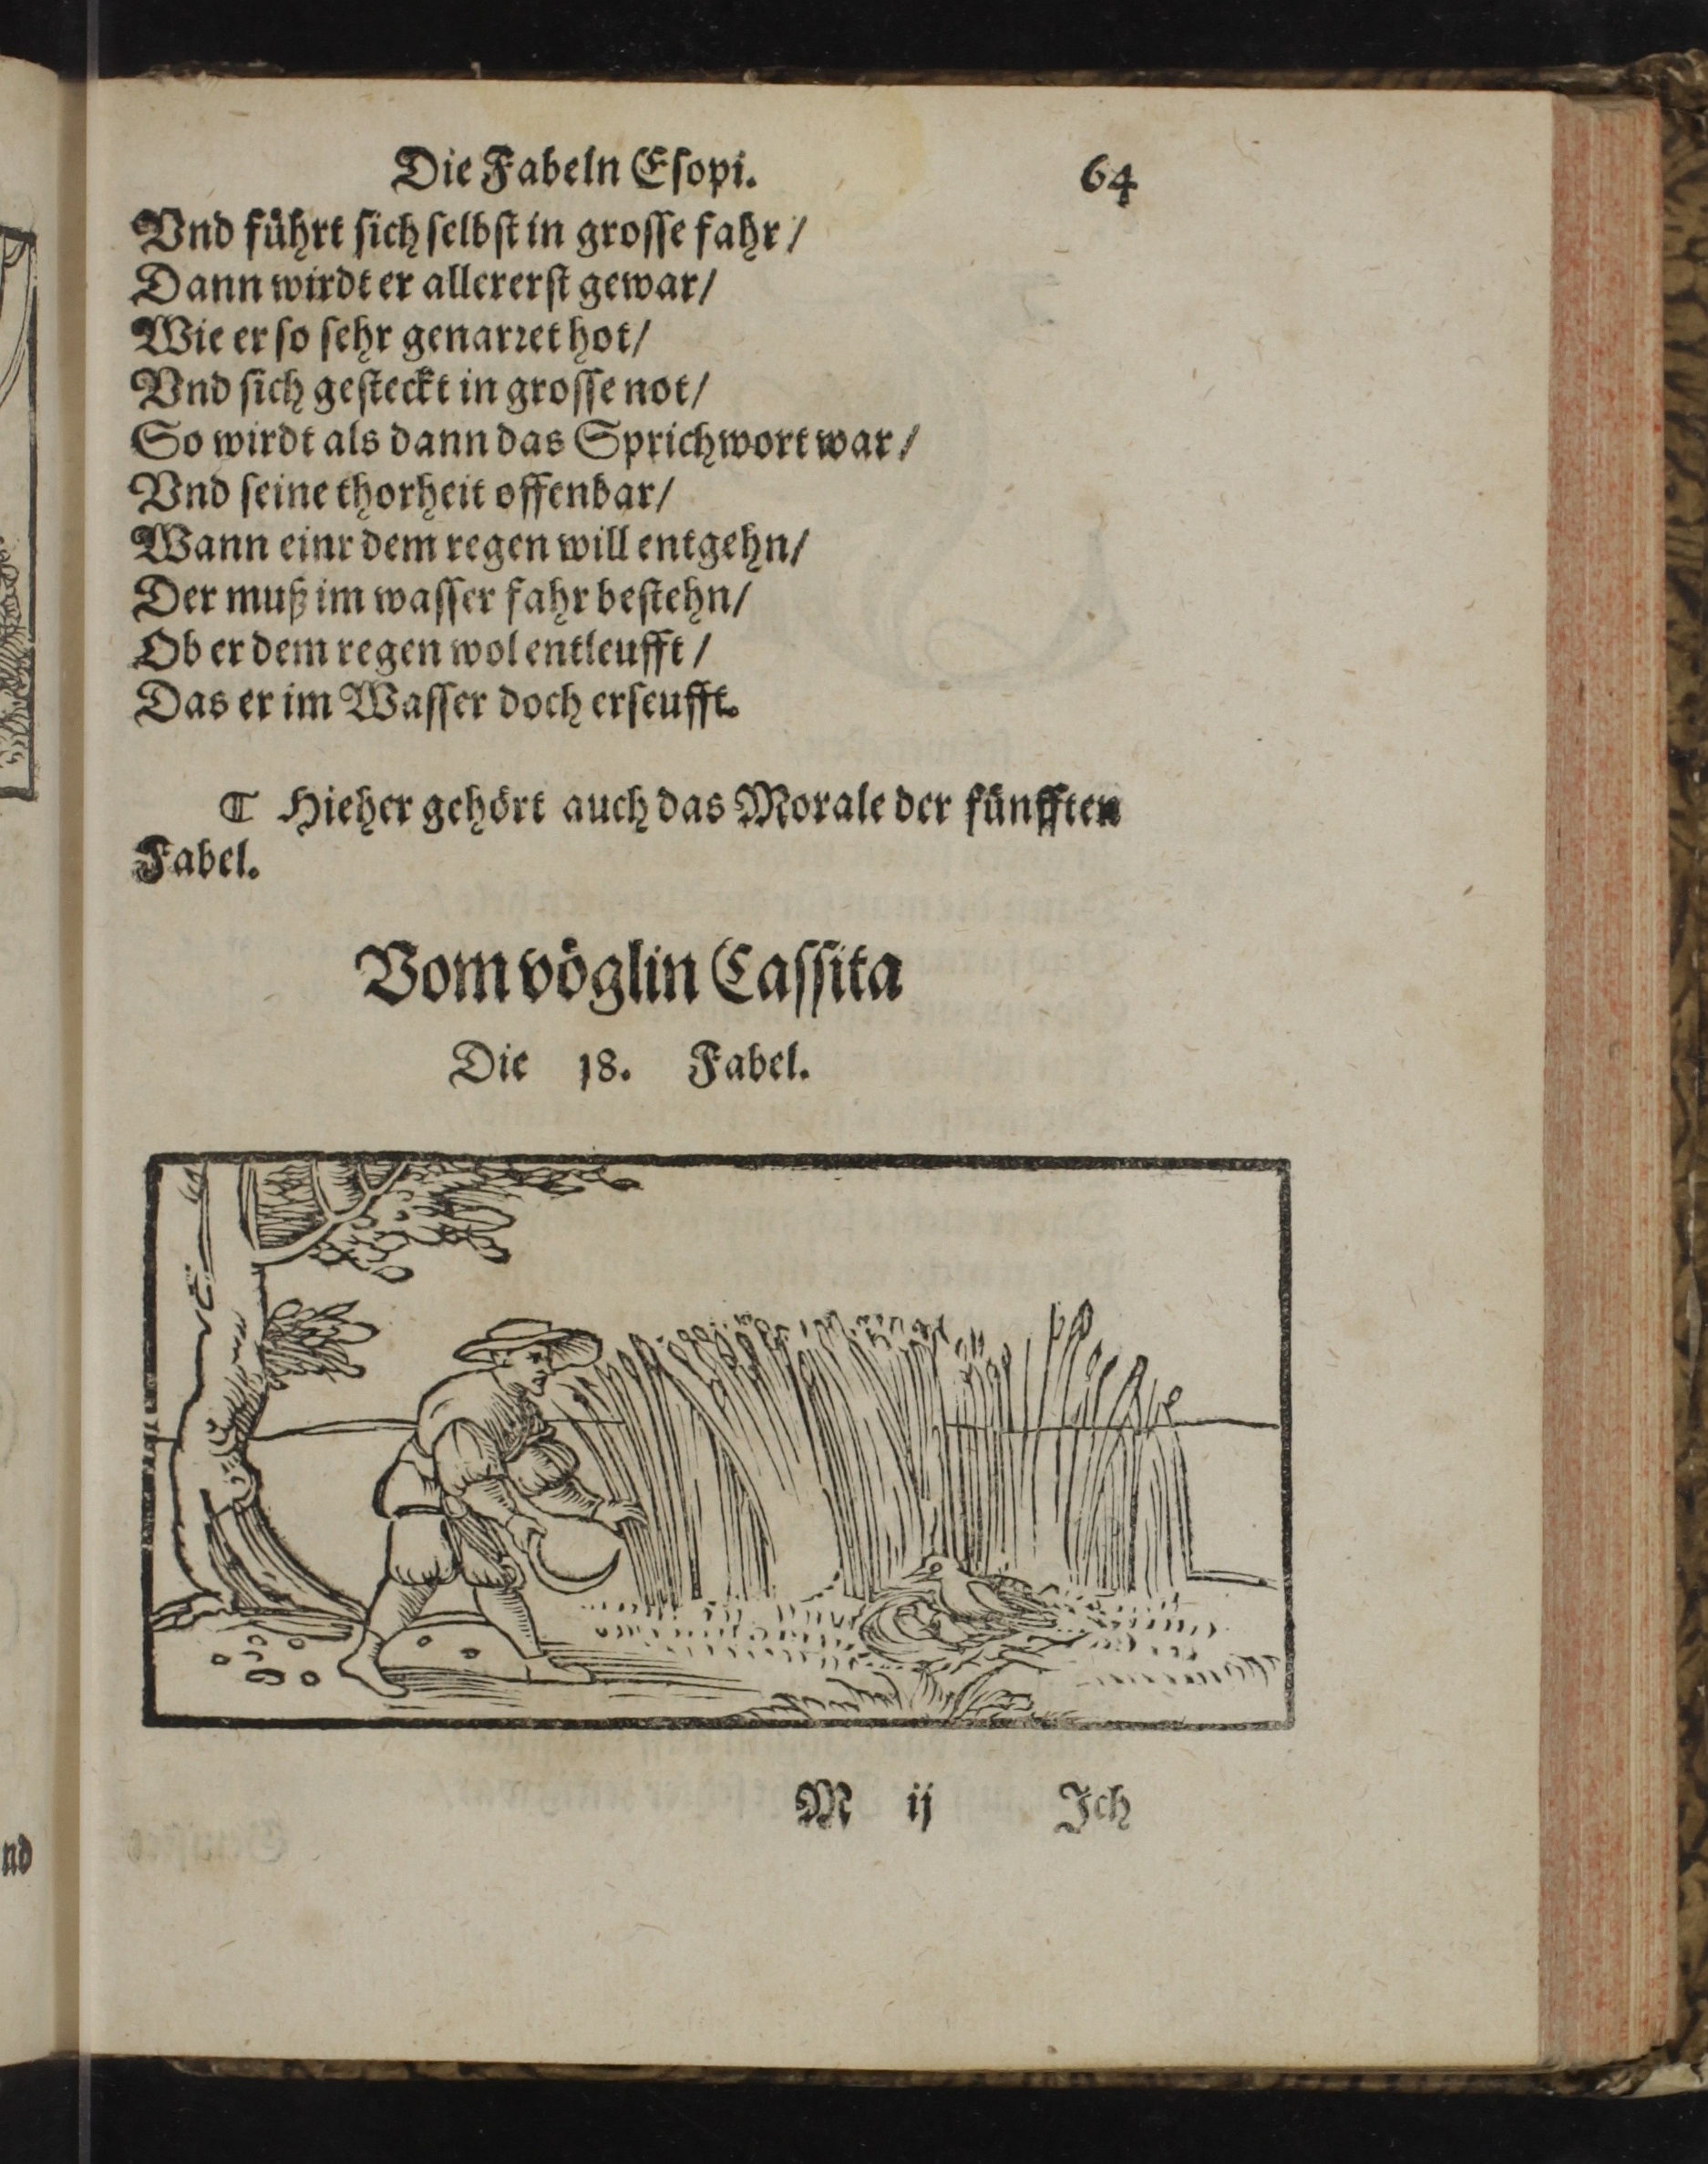 Die Fabeln Eſopi. 64
Vnd fuͤhrt ſich ſelbſt in groſſe fahr/
Dann wirdt er allererſt gewar/
Wie er ſo ſehr genarꝛet hot/
Vnd ſich geſteckt in groſſe not/
So wirdt als dann das Sprichwort war/
Vnd ſeine thorheit offenbar/
Wann einr dem regen will entgehn/
Der muß im waſſer fahr beſtehn/
Ob er dem regen wol entleufft/
Das er im Waſſer doch erſeufft.
¶ Hieher gehoͤrt auch das Morale der fuͤnfften
Fabel.
Vom voͤglin Caſſita
Die 18. Fabel.
M ij Jch
nd